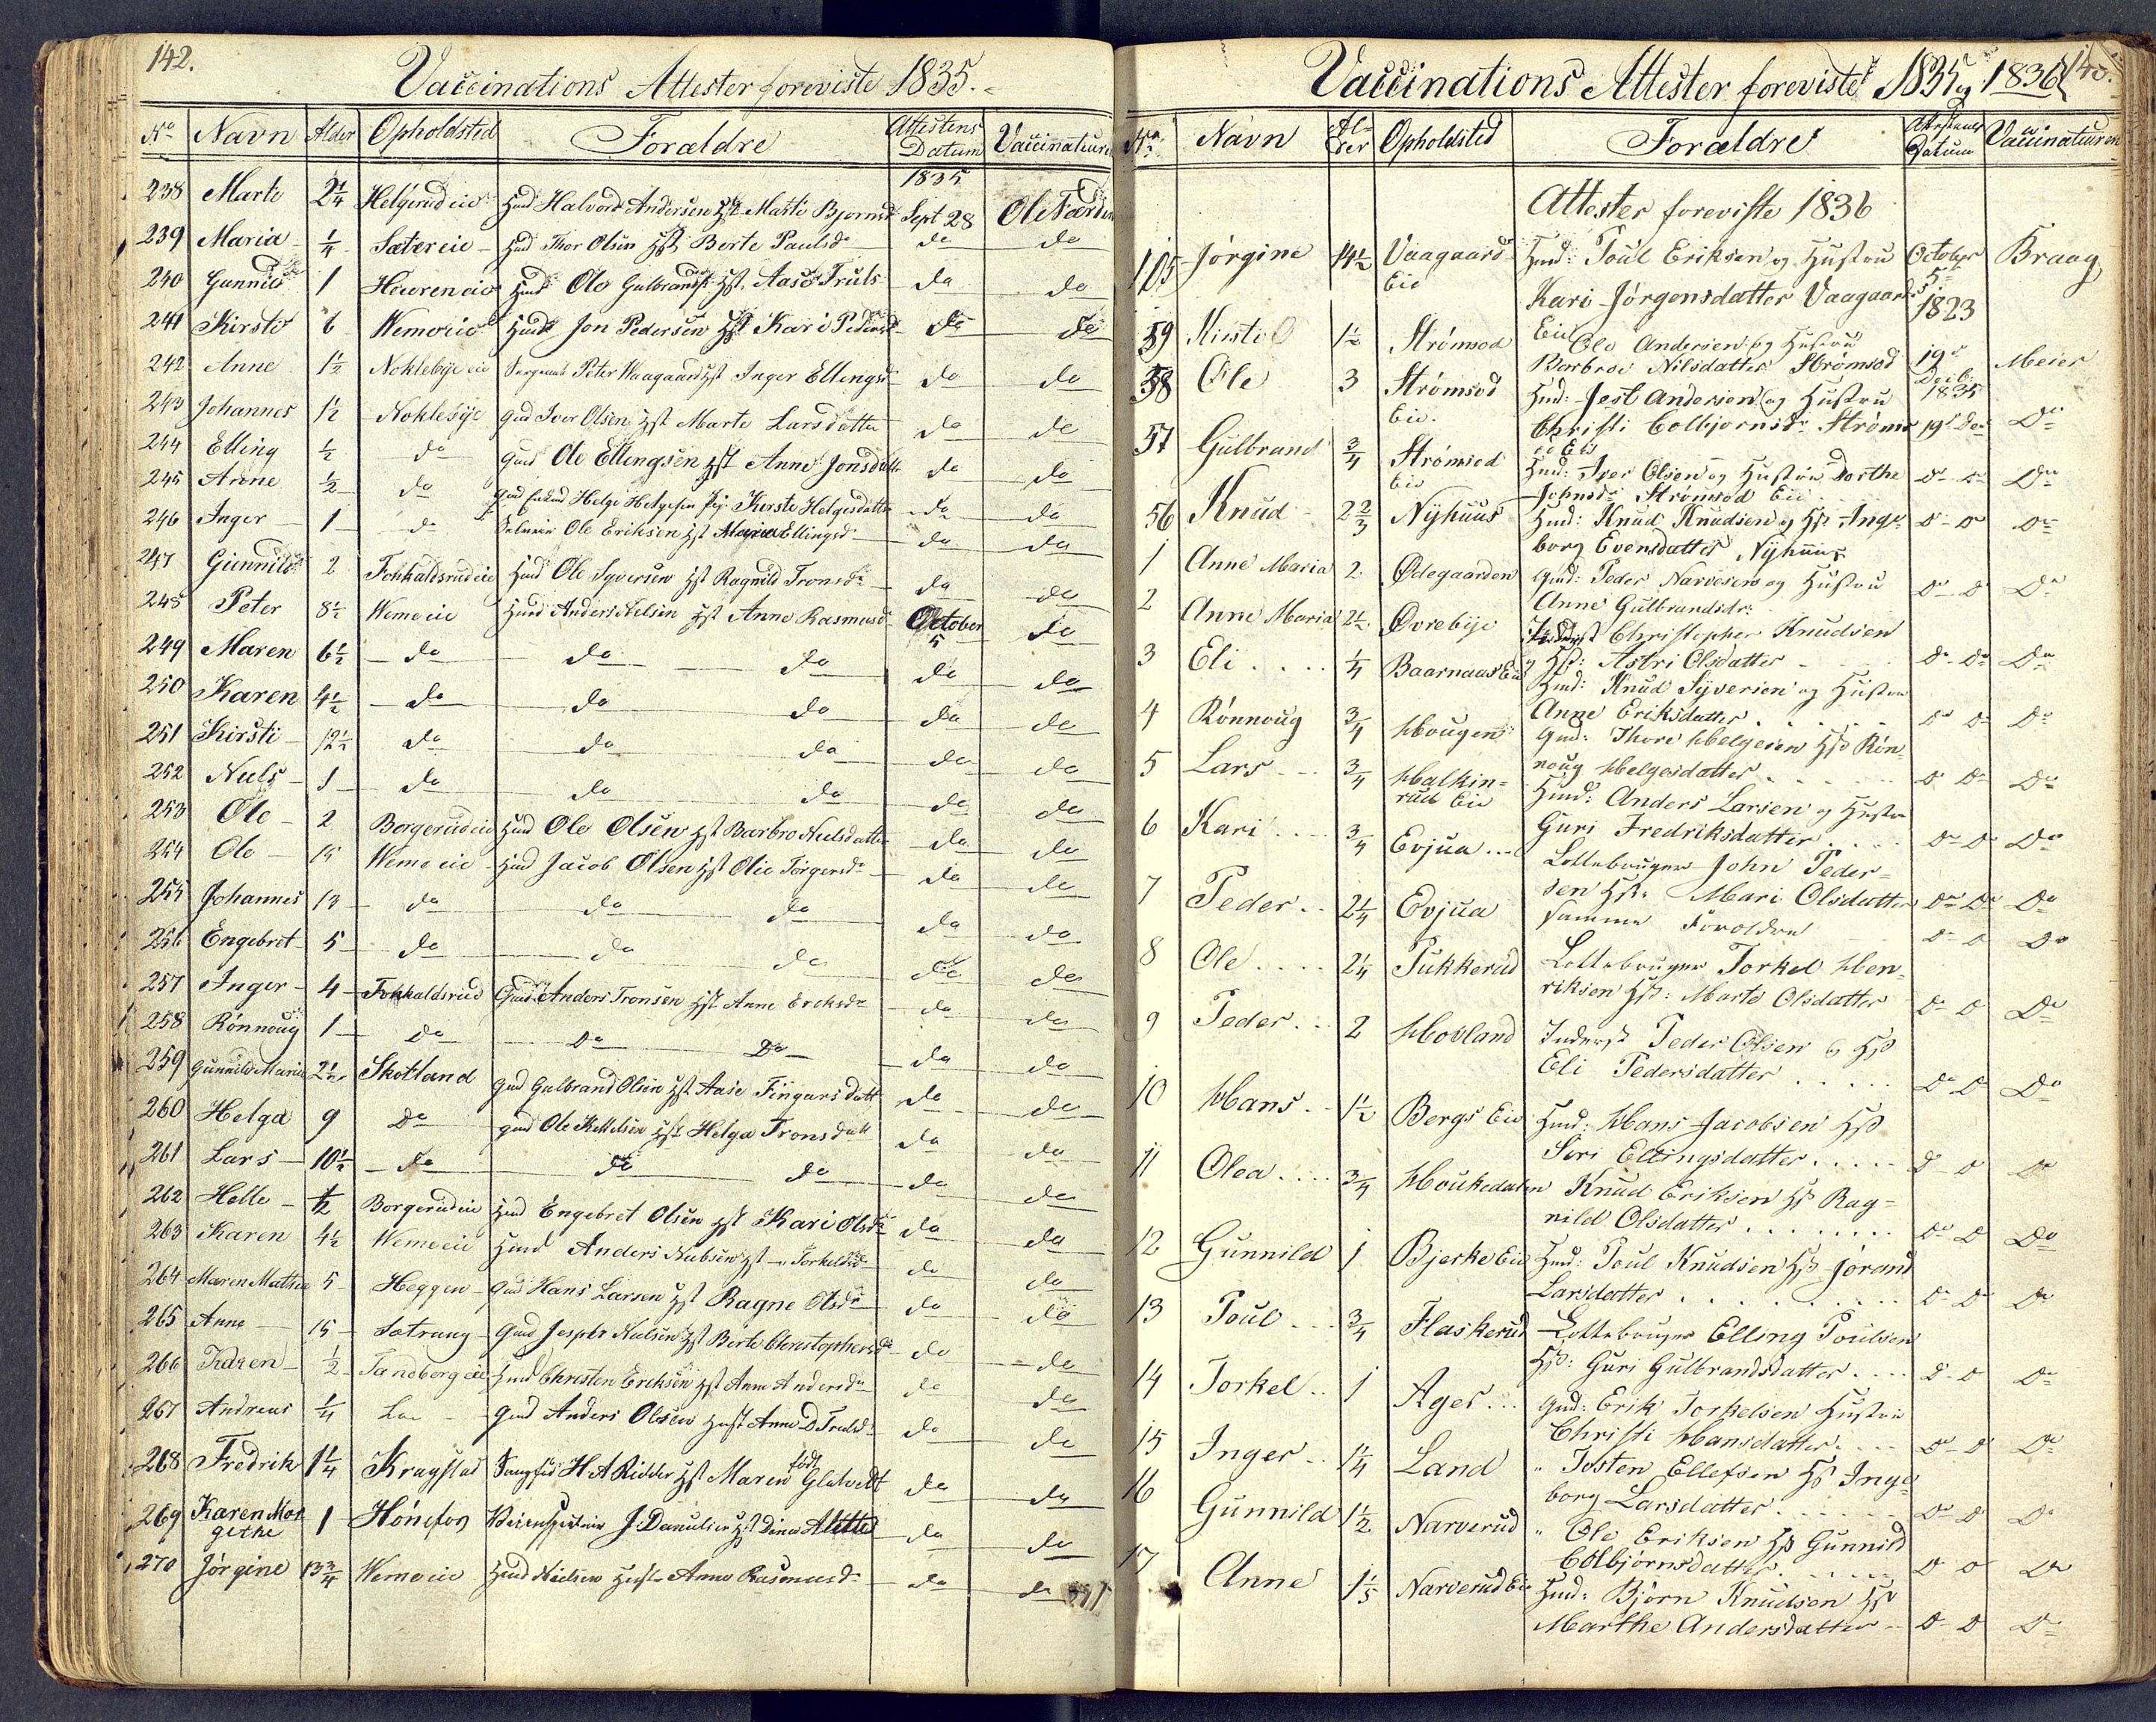 142.
Vaccinations Attester foreviste 1835.
No Navn Alder Opholdsted Forældre Attestens Datum Vaccinateuren
1835
238 Marte 2 1/4 Helgerud eie Hmd Halvord Andersen Hst Marte Bjornsd Sept 28 Ole Nærden
239 Maria 1/4 Sæter eie Hmd Thor Olsen Hst Berte Paulsd do do
240 Gunnild 1 Hmd Ole Gulbrands Hst. Aase Truls do do
241 Kirsti 6 Weme eie Hmd Jon Pedersen Hst Kari Pedersd do do
242 Anne 1 1/2 Noklebye eie Sergeant Peter Waagaard Hst Inger Ellingsd do do
243 Johannes 1 1/2 Noklebye Gmd Iver Olsen Hst Marte Larsdatter do do
244 Elling 1/2 do Gmd Ole Ellingsen Hst Anne Jonsdatt do do
245 Anne 1/2 do Helge Helgesen Pige Kirste Helgesdatter do do
246 Inger 1 do Ole Eriksen Hst Maria Ellingsd do do
247 Gunnild 2 Fohkaldsrud eie Hmd Ole Syversen Hst Ragnild Tronsd do do
248 Peter 8 1/2 Weme eie Hmd Anders Nelsen Hst Anne Rasmusd October 5 do
249 Maren 6 1/2 do do do do do
250 Karen 4 1/2 do do do do do
251 Kirsti 12 1/2 do do do do do
252 Niels 1 do do do do do
253 Ole 2 Borgerud eie Hmd Ole Olsen Hst Barbro Nielsdatter do do
254 Ole 15 Weme eie Hmd Jacob Olsen Hst Olie Torgersd do do
255 Johannes 13 do do do do do
256 Engebret 5 do do do do do
257 Inger 4 Fohkaldsrud Gmd Anders Tronsen Hst Anne Ericksd do do
258 Rönnoug 1 Do Do Do do do
259 Gunnild Maria 2 1/2 Skotland Gmd Gulbrand Olsen Hst Aase Fingarsdatt do do
260 Helga 9 Do Gmd Ole Kittelsen Hst Helga Tronsdatt do do
261 Lars 10 1/2 do do do do do
262 Helle 1/2 Borgerud eie Hmd Engebret Olsen Hst Kari Olsd do do
263 Karen 4 1/2 Weme eie Hmd Anders Nielsen Hst Torkelsd do do
264 Maren Mathia 5 Heggen Gmd Hans Larsen Hst Ragne Olsd do do
265 Anne 15 Sætrang Gmd Jesper Nielsen Hst Berte Christophersd do do
266 Karen 1/2 Tandberg eie Hmd Christen Ericksen Hst Anne Andersd do do
267 Andreas 1/4 Gmd Anders Olsen Hst Anne D Trulsd do do
268 Fredrik 1 1/4 Kragstad H A Ridder Hst Maren født Glatvedt do do
269 Karen Mar
gethe 1 Hönefos J. Danielsen Hst Dina Alette do do
270 Jörgine 13 3/4 Weme eie Hmd Nielsen Hst Anne Rasmusd do do
Vaccinations Attester foreviste 1835 og 1836
No Navn Al-
der Opholdsted Forældre Attestens Datum Vaccinateuren
Attester foreviste 1836
105 Jörgine 14 1/2 Vaagaards Eie Hmd: Poul Eriksen og Hustru October 5 Braag
Kari Jörgensdatter Vaagaards Eie 1823
59 Kirsti 1 1/2 Strömsod Ole Andersen og Hustru
Barbroe Nilsdatter Strömsod 19 Decbr 1835 Meier
58 Ole 3 Strömsod Eie. Hmd: Jest Andersen og Hustru
Christi Colbjornsdr Strömsod Eie 19 Do Do
57 Gulbrand 3/4 Strömsod Eie Hmd: Iver Olsen og Hustru Dorthe
Johnsdr Strömsod Eie Do Do Do
56 Knud 2 2/3 Nyhuus Hmd: Knud Knudsen og Hst Inge-
borg Evensdatter Nyhuus Do Do Do
1 Anne Maria 2 Ødegaarden Gmd: Peder Narvesen og Hustru
Anne Gulbrandsdr: Do Do Do
2 Anne Maria 2 1/2 Øvrebye Inderst Christopher Knudsen
Hst: Astri Olsdatter Do Do Do
3 Eli 1/4 Baarnaas Eie Hmd: Knud Syversen og Hustru
Anne Eriksdatter Do Do Do
4 Rönnoug 3/4 Hougen Gmd: Thore Helgesen Hst Rön-
noug Helgesdatter Do Do Do
5 Lars 3/4 Halkin-
rud Eie Hmd: Anders Larsen og Hustru
Guri Fredriksdatter Do Do Do
6 Kari 3/4 Evjua Lottebruger John Peder-
sen Hst. Mari Olsdatter Do Do Do
7 Peder 2 1/4 Evjua Samme Foroldre Do Do Do
8 Ole 2 1/4 Pukkerud Lottebruger Torkel Hen-
riksen Hst: Marte Olsdatter Do Do Do
9 Peder 2 Hovland Inderst Peder Olsen og Hst
Eli Pedersdatter Do Do Do
10 Hans 1 1/2 Bergs Eie Hmd: Hans Jacobsen Hst
Siri Ellingsdatter Do Do Do
11 Olea 3/4 Houkedalen Knud Eriksen Hst Rag-
nild Olsdatter Do Do Do
12 Gunnild 1 Bjerke Eie Hmd: Poul Knudsen Hst Jörand
Larsdatter Do Do Do
13 Poul 3/4 Flaskerud Lottebruger Elling Poulsen
Hst: Guri Gulbrandsdatter Do Do Do
14 Torkel 1 Ager Gmd: Erik Torkelsen Hustru
Christi Hansdatter Do Do Do
15 Inger 1 1/4 Land " Tosten Ellefsen Hst Inge-
borg Larsdatter Do Do Do
16 Gunnild 1 1/2 Narverud " Ole Eriksen Hst Gunnild
Colbjörnsdatter Do Do Do
17 Anne 1 1/5 Narverud Eie Hmd: Björn Knudsen Hst
Marthe Andersdatter Do Do Do